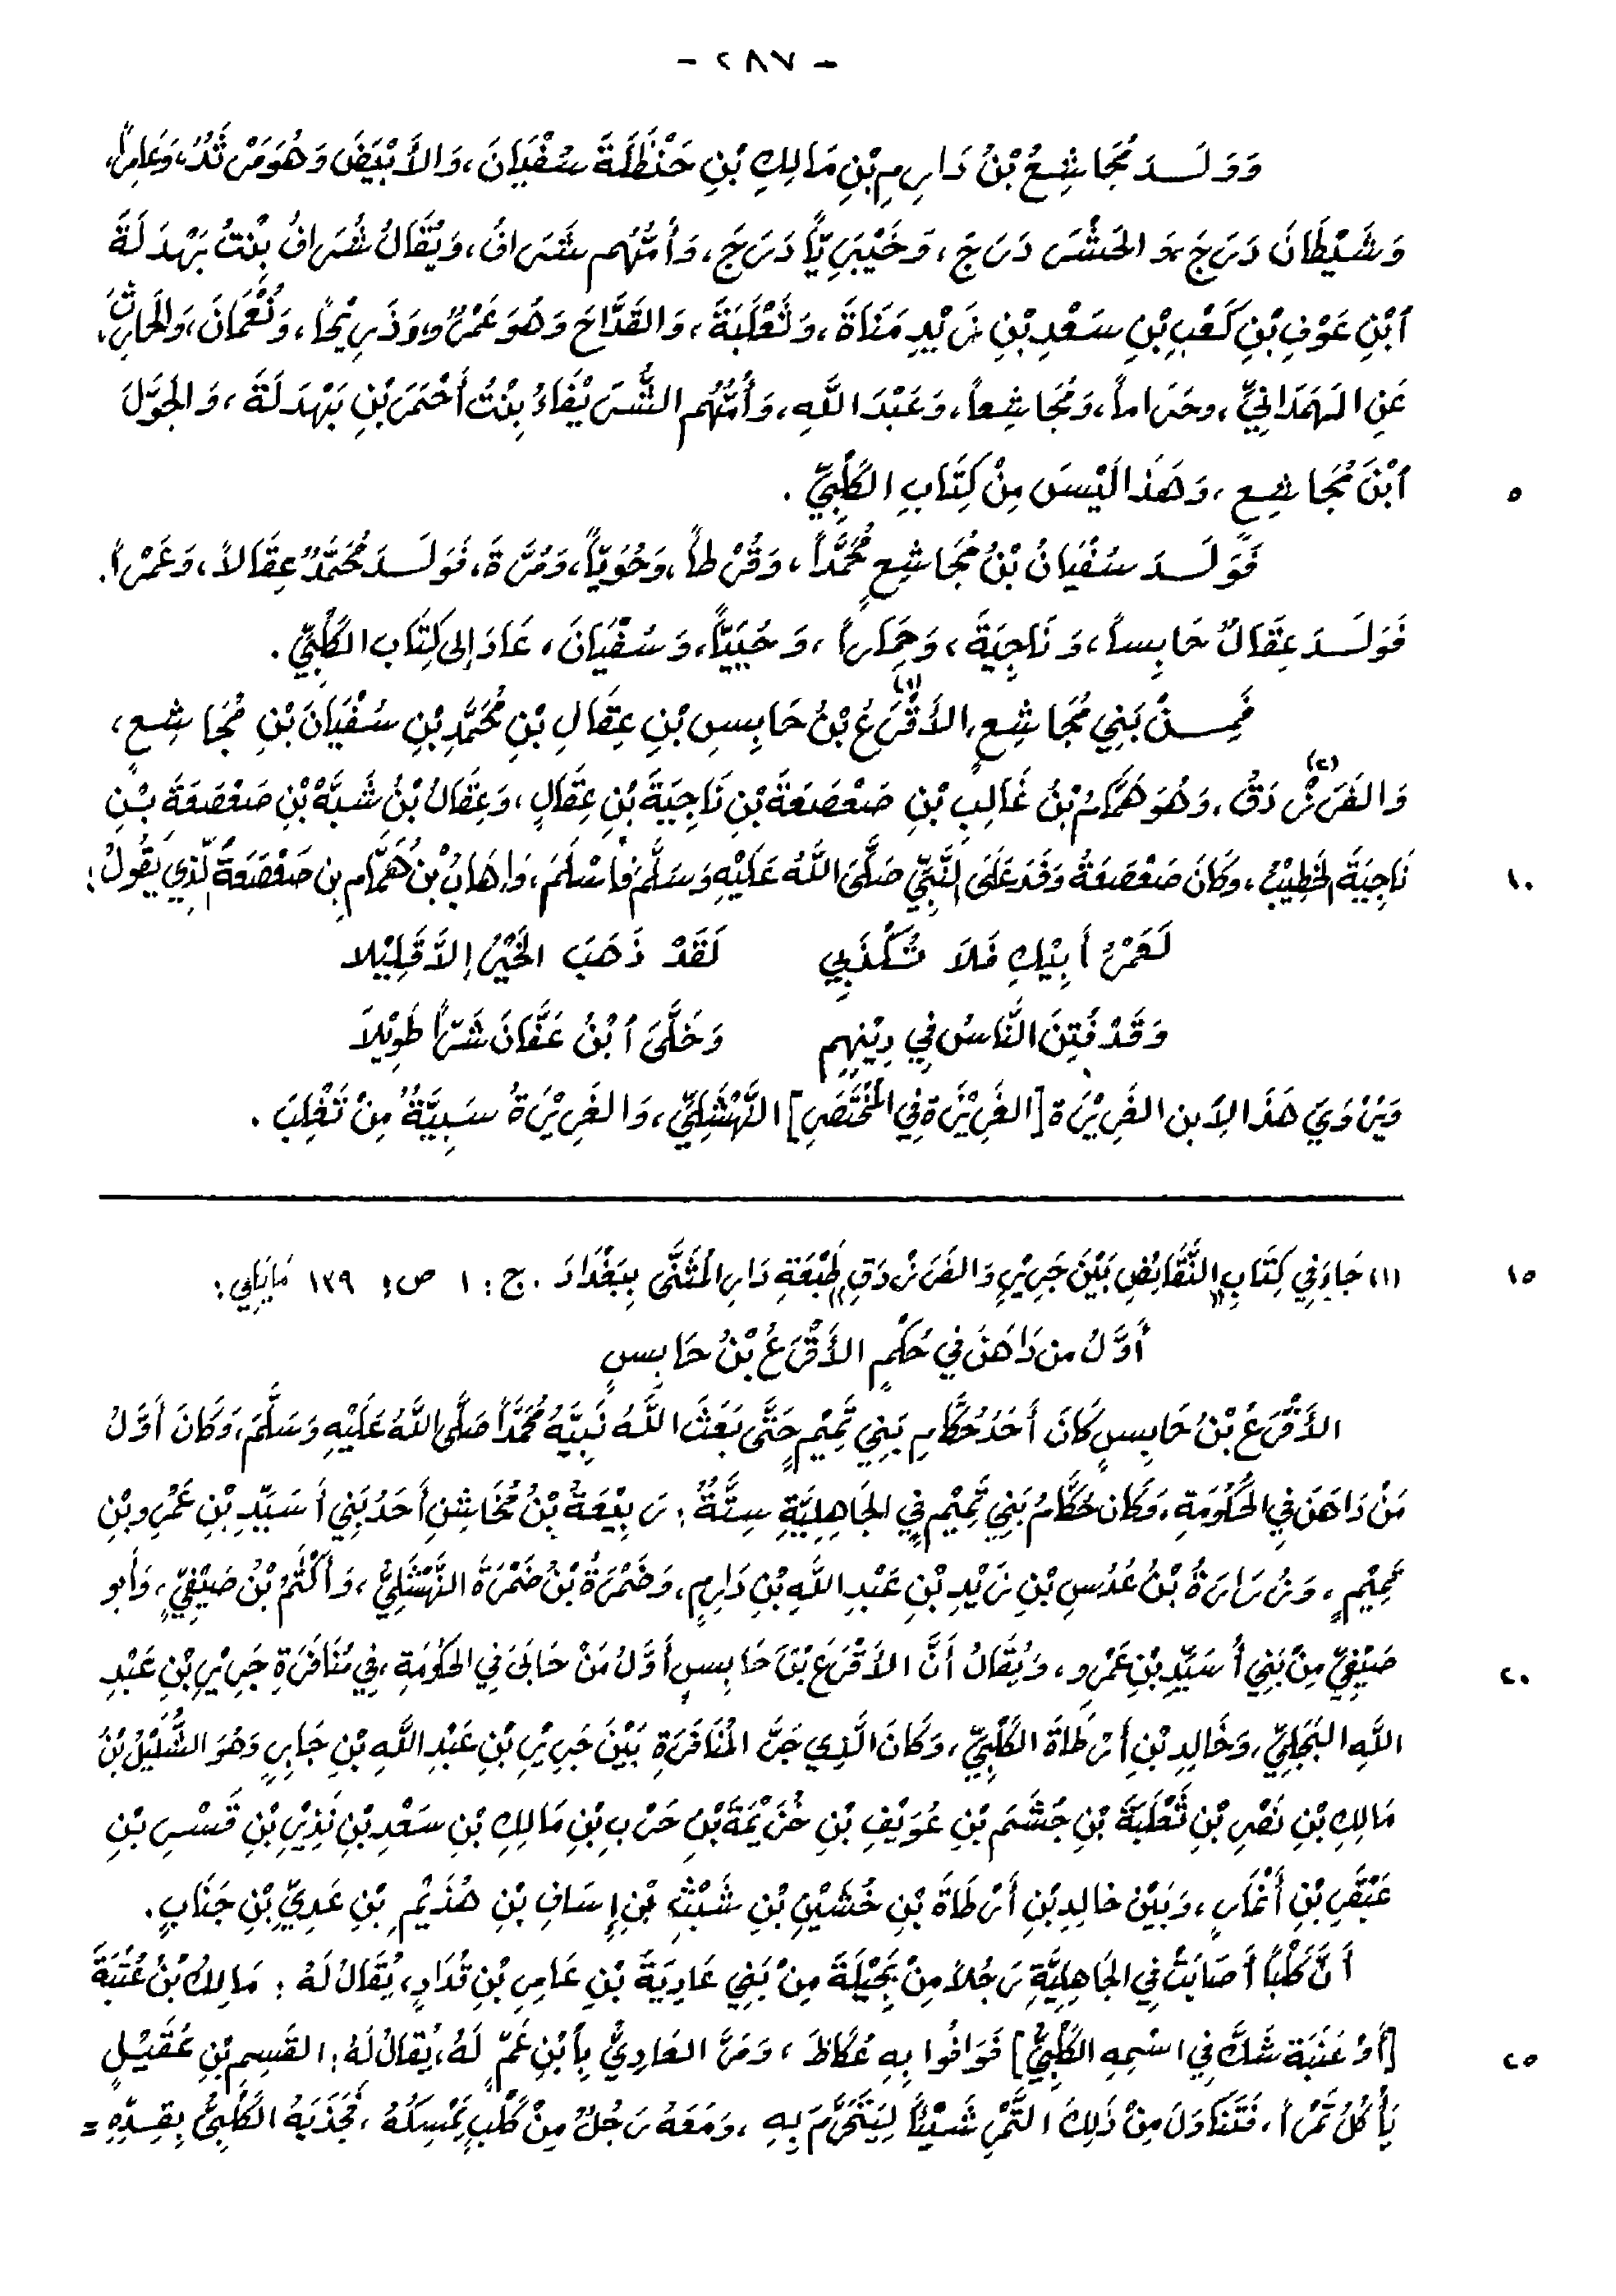 - ٢٨٧ -
وَوَلَــدَ مُجَاشِعُ بْنُ دَارِمِ بْنِ مَالِكِ بْنِ حَنْظَلَةَ سُفْيَانَ، وَالأَبْيَضَ وَهُوَ مَرْثَدُ، وَعَامِراً،
وَشَيْطَانَ دَرَجَ، وَالحَشْرَ دَرَجَ، وَخَيْبَرِيّاً دَرَجَ، وَأُمُّهُم شَرَافُ، وَيُقَالُ شُرَافُ بِنْتُ بَهْدَلَةَ
ٱبْنِ عَوْفِ بْنِ كَعْبِ بْنِ سَعْدِ بْنِ زَيْدِ مَنَاةَ، وَثَعْلَبَةَ، وَالقَدَّاحَ وَهُوَ عَمْرٌو، وَذَرِيْحاً، وَنُعْمَانَ، وَالحَارِثَ،
عَنِ الهَمَدَانِيِّ، وحَرَاماً، وَمُجَاشِعاً، وَعَبْدَ اللَّهِ، وَأُمُّهُم الشَّرْيْفَاءُ بِنْتُ أَحْمَرَ بْنِ بَهْدَلَةَ، وَالجَوَّلَ
ٱبْنَ مُجَاشِعٍ، وَهَذَا لَيْسَ مِنْ كِتَابِ الكَلْبِيِّ. ٥
فَوَلَــدَ سُفْيَانُ بْنُ مُجَاشِعٍ مُحَمَّداً، وَقُرْطاً، وَحُوَيّاً، وَمُرَّةَ، فَوَلَــدَ مُحَمَّدٌ عِقَالاً، وَعَمْراً.
فَوَلَــدَ عِقَالٌ حَابِساً، وَنَاجِيَةَ، وَحِمَاراً، وَحُبَيِيّاً، وَسُفْيَانَ، عَادَ إلى كِتَابِ الكَلْبِيِّ.
فَمِــنْ بَنِي مُجَاشِعٍ الأَقْرَعُ(١) بْنُ حَابِسِ بْنِ عِقَالِ بْنِ مُحَمَّدِ بْنِ سُفْيَانَ بْنِ مُجَاشِعٍ،
وَالفَرَزْدَقُ(٢)، وَهُوَ هَمَّامُ بْنُ غَالِبِ بْنِ صَعْصَعَةَ بْنِ نَاجِيَةَ بْنِ عِقَالٍ، وَعِقَالُ بْنُ شَبَّةَ بْنِ صَعْصَعَةَ بْـنِ
نَاجِيَةَ الخَطِيْبُ، وَكَانَ صَعْصَعَةُ وَفَدَ عَلَى النَّبِيِّ صَلَّى اللَّهُ عَلَيْهِ وَسَلَّمَ فَأسْلَمَ، وَإهَابُ بْنُ هَمَّامِ بنِ صَعْصَعَةَ الَّذِي يَقُولُ: ١٠
لَعَمْرُ أَبِيْكِ فَلاَ تُكْذَبِي لَقَدْ ذَهَبَ الخَيْرُ إلاَّ قَلِيْلا
وَقَدْ فُتِنَ النَّاسُ فِي دِيْنِهِم وَخَلَّى ٱبْنُ عَفَّانَ شَرّاً طَوِيْلاَ
وَيَرْوِيَ هَذَا لِابنِ الغَرِيْرَة [الغَرِيْزَة فِي المُخْتَصَرِ] النَّهْشَلِيِّ، وَالغَرِيْرَةُ سَبِيَّةٌ مِنْ تَغْلِبَ.
(١) جَاءَ فِي كِتَابِ «النَّقَائِضِ بَيْنَ جَرِيْرٍ وَالفَرَزْدَقِ» طَبْعَةِ دَارِ المُثَنَّى بِبَغْدَادَ. ج: ١ ص: ١٣٩ مَايَلِي: ١٥
أَوَّلُ من دَاهَنَ فِي حُكْمٍ الأَقْرَعُ بْنُ حَابِسٍ
الأَقْرَعُ بْنُ حَابِسٍ كَانَ أَحَدَ حُكَّامِ بَنِي تَمِيْمٍ حَتَّى بَعَثَ اللَّهُ نَبِيَّهُ مُحَمَّداً صَلَّى اللَّهُ عَلَيْهِ وَسَلَّمَ، وَكَانَ أَوَّلُ
مَنْ دَاهَنَ فِي الحُكُومَةِ، وَكَان حُكَّامُ بَنِي تَمِيْمٍ فِي الجَاهِلِيَّةِ سِتَّةٌ: رَبِيْعَةُ بْنُ مُخَاشِنٍ أَحَدُ بَنِي أُسَيِّدِ بْنِ عَمْرِو بْنِ
تَمِيْمٍ، وَزُرَارَةُ بْنُ عُدُسِ بْنِ زَيْدِ بْنِ عَبْدِ اللَّهِ بْنِ دَارِمٍ، وَضَمْرَةُ بْنُ ضَمْرَةَ النَّهْشَلِيُّ، وَأَكْثَمُ بْنُ صَيْفِيٍّ، وَأَبو
صَيْفِيٍّ مِنْ بَنِي أُسَيِّدِ بْنِ عَمْرٍو، وَيُقَالُ أَنَّ الأَقْرَعَ بْنَ حَابِسٍ أَوَّلُ مَنْ حَابَى فِي الحُكُومَةِ، فِي مُنَافَرَةِ جَرِيْرِ بْنِ عَبْدِ ٢٠
اللَّهِ البَجَلِيِّ، وَخَالِدِ بْنِ أَرْطَاةَ الكَلْبِيِّ، وَكَانَ الَّذِي جَرَّ المُنَافَرَةِ بَيْنَ جَرِيْرِ بْنِ عَبْدِ اللَّهِ بْنِ جَابِرٍ وَهُوَ الشَّلِيْلُ بْنُ
مَالِكِ بْنِ نَصْرِ بْنِ ثَعْلَبَةَ بْنِ جُشَمَ بْنِ عُوَيْفِ بْنِ خُزَيْمَةَ بْنِ حَرْبِ بْنِ مَالِكِ بْنِ سَعْدِ بْنِ نَذِيْرِ بْنِ قَسْرِ بْنِ
عَبْقَرِ بْنِ أَنْمَارٍ، وَبَيْن خالِدِ بْنِ أَرْطَاةَ بْنِ خُشَيْنِ بْنِ شَبَثِ بْنِ إِسَافِ بْنِ هُذَيْمِ بْنِ عَدِيِّ بْنِ جَنَابٍ.
أَنَّ كَلْباً أَصَابَتْ فِي الجَاهِلِيَّةِ رَجُلاً مِنْ بَجِيْلَةَ مِنْ بَنِي عَادِيَةَ بْنِ عَامِرِ بْنِ قُدَادٍ، يُقَالُ لَهُ: مَالِكُ بْنُ عُتْبَةَ
[أَوْ عَنَبَة شَكَّ فِي اسْمِهِ الكَلْبِيُّ] فَوَافُوا بِهِ عُكَاظَ، وَمَرَّ العَادِيُّ بِٱبْنِ عَمٍّ لَهُ، يُقالُ لَهُ: القَسِمِ بْنِ عُقَيْلٍ ٢٥
يَأْكُلُ تَمْراً، فَتَنَاوَلَ مِنْ ذَلِكَ التَّمْرِ شَيْئاً لِيَتَحَرَّمَ بِهِ، وَمَعَهُ رَجُلٌ مِنْ كَلْبٍ يُمْسِكُهُ، فَجَذَبَهُ الكَلْبِيُّ بِقِدِّهِ =